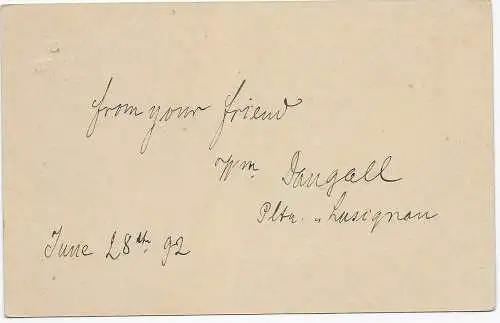 from your friend
Wm. Dangall
Pltn. „ Lusignan
June 28th. 92